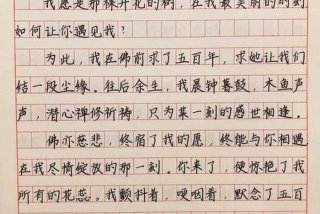 我愿是那棵开花的树，在我最美丽的时刻
如何让你遇见我？
为此，我在佛前求了五百年，求她让我们
结一段尘缘。往后余生，我晨钟暮鼓，木鱼声
声，潜心禅修祈祷，只为某一刻的感世相逢。
佛亦慈悲，终宿了我的愿，终能与你相遇
在我尽情绽放的那一刻。你来了，便惊艳了我
所有的花蕊。我颤抖着，哽咽着，默念了五百